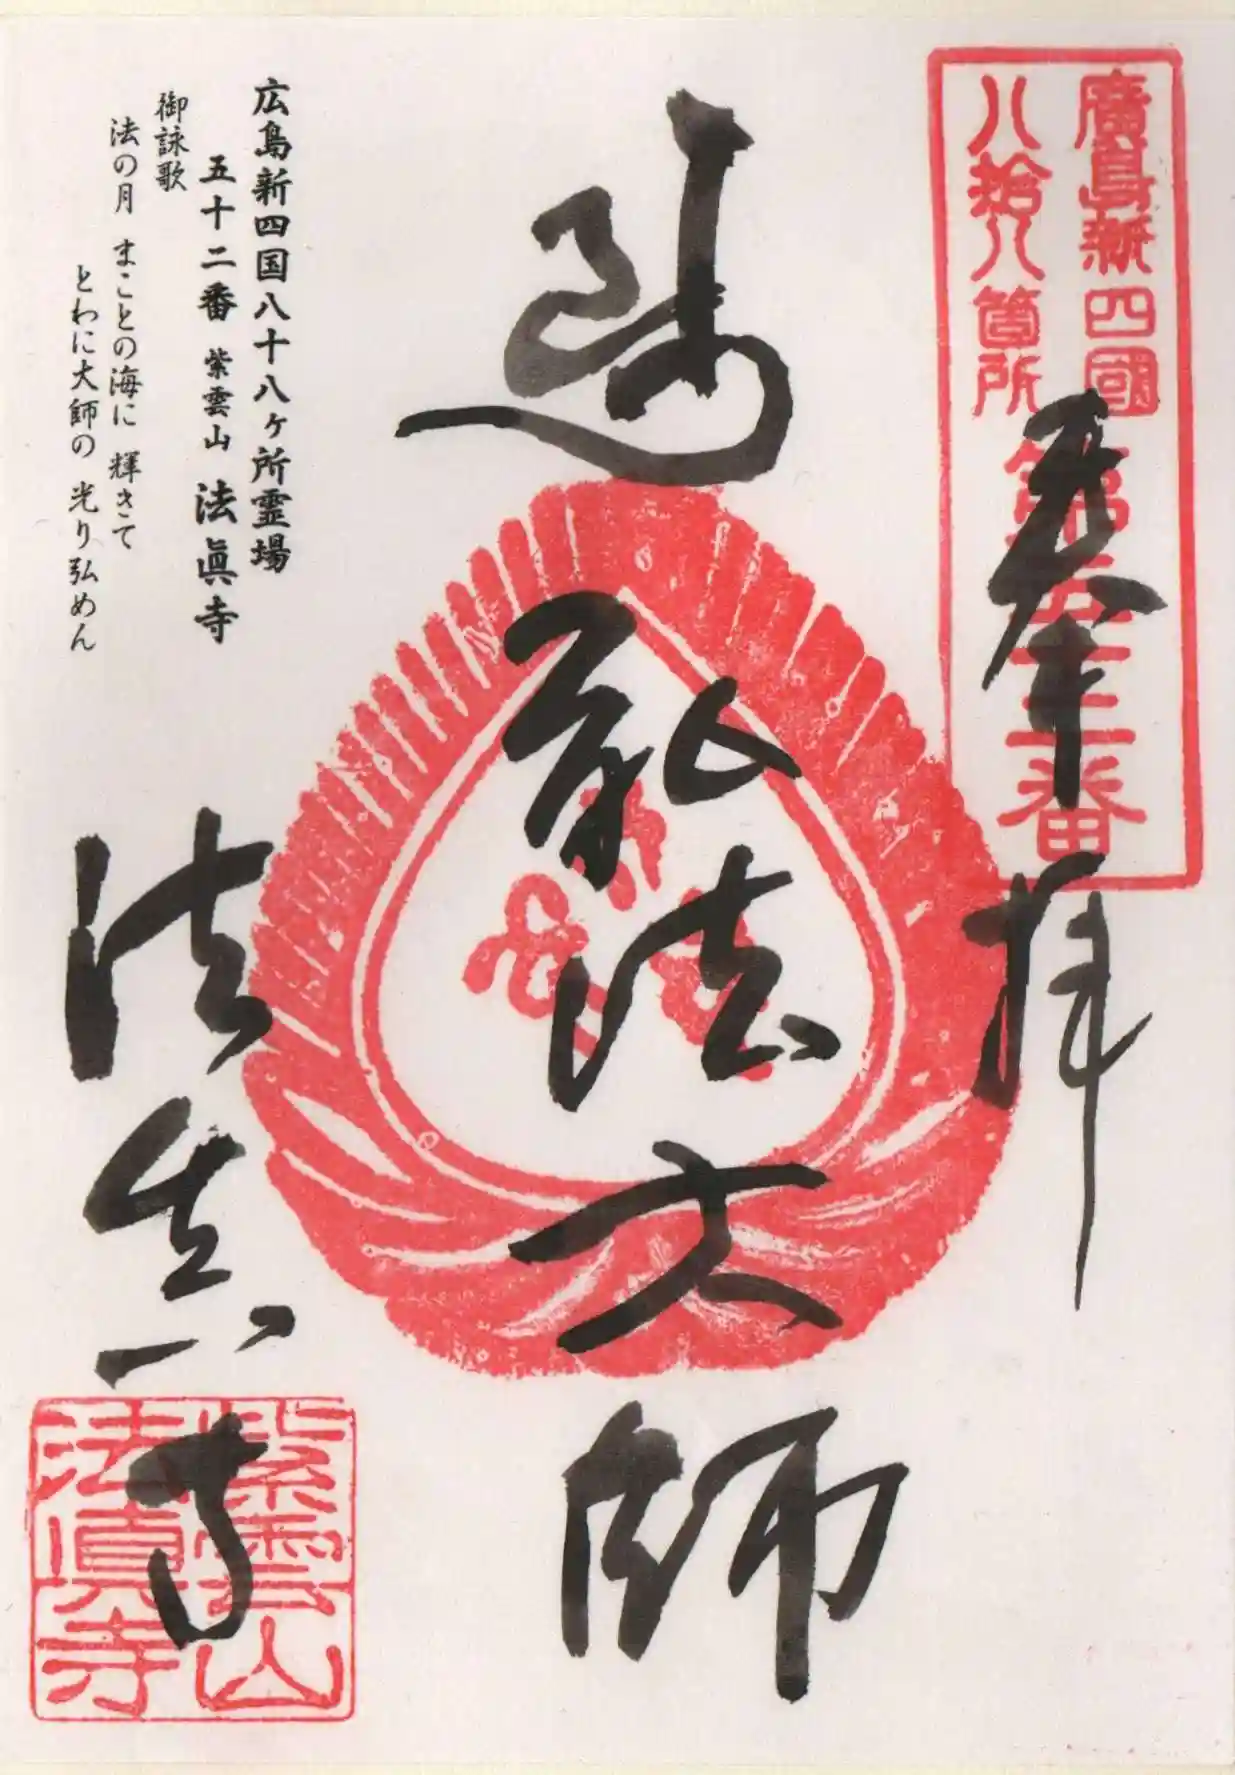 廣島新四國
八拾八箇所
第五十二番
奉拝
弘法大師
広島新四国八十八ヶ所霊場
五十二番 紫雲山 法眞寺
御詠歌
法の月 まことの海に 輝きて
とわに大師の 光り弘めん
法眞寺
紫雲山
法眞寺